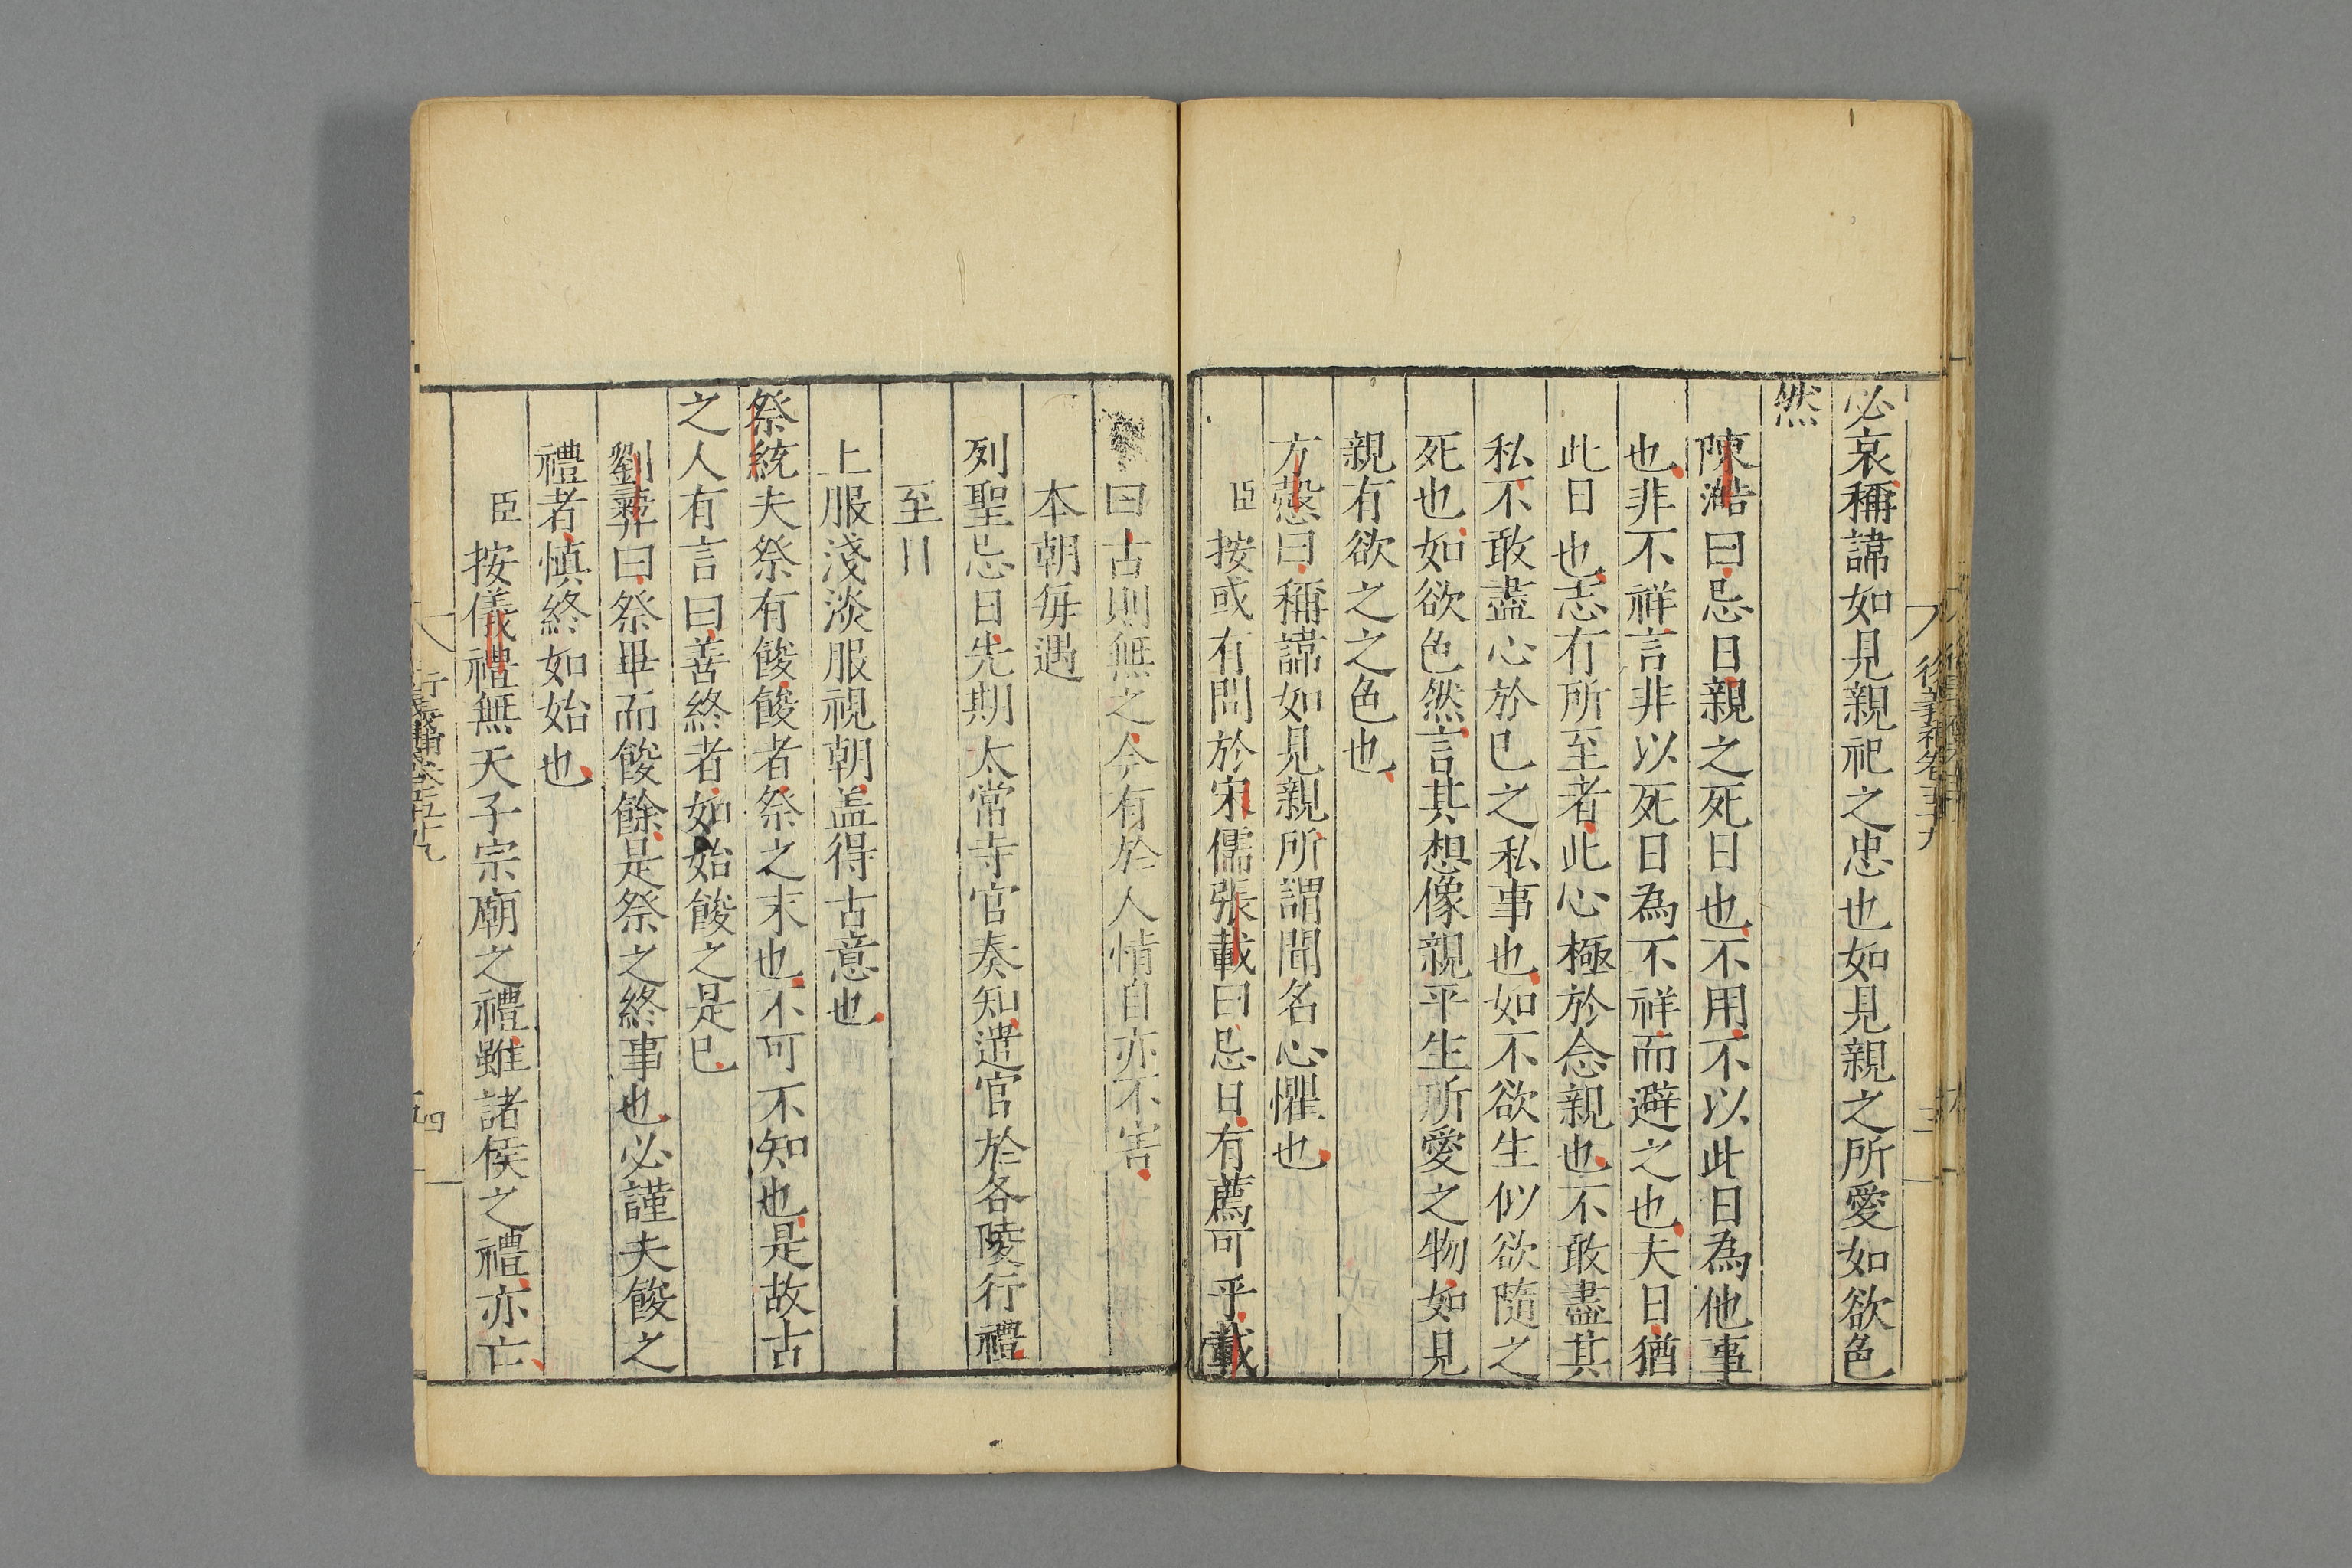 必哀稱諱如見親祀之忠也如見親之所愛如欲色
然
陳澔曰忌日親之死日也不用不以此日為他事
也非不祥言非以死日為不祥而避之也夫日猶
此日也志有所至者此心極於念親也不敢盡其
私不敢盡心於已之私事也如不欲生似欲隨之
死也如欲色然言其想像親平生所愛之物如見
親有欲之之色也
方愨曰稱諱如見親所謂聞名心懼也
臣按或有問於宋儒張載曰忌日有薦可乎載
曰古則無之今有於人情自亦不害
本朝每遇
列聖忌日先期太常寺官奏知遣官於各陵行禮
至日
上服淺淡服視朝盖得古意也
祭統夫祭有餕餕者祭之末也不可不知也是故古
之人有言曰善終者如始餕之是已
劉彝曰祭畢而餕餘是祭之終事也必謹夫餕之
禮者慎終如始也
臣按儀禮無天子宗廟之禮雖諸侯之禮亦亡